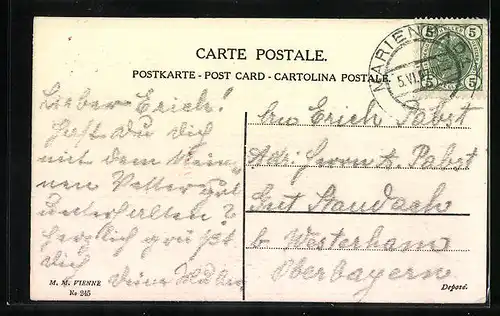 CARTE POSTALE.
POSTKARTE - POST CARD - CARTOLINA POSTALE.
MARIENBAD
5.VI.
5 5
5 5
Lieber Erich!
Hast Du Dich
mit dem kleinen
Vetter gut
unterhalten?
herzlich grüßt
Dich
Deine
Erich Pabst
Adr: Herrn A. Pabst
Gut Staudach
b Westerham
Oberbayern
M. M. VIENNE
No 245
Deposé.